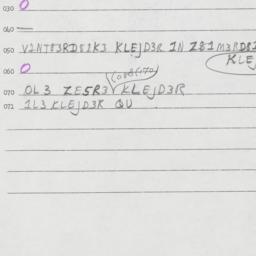 030 O
040 —
050 V2NT83RD82K3 KLEJD3R 1N Z81M3RD81
KLEJ
060 O
070 OL3 ZE5R3 KLEJD3R
071 1L3 KLEJD3R QU